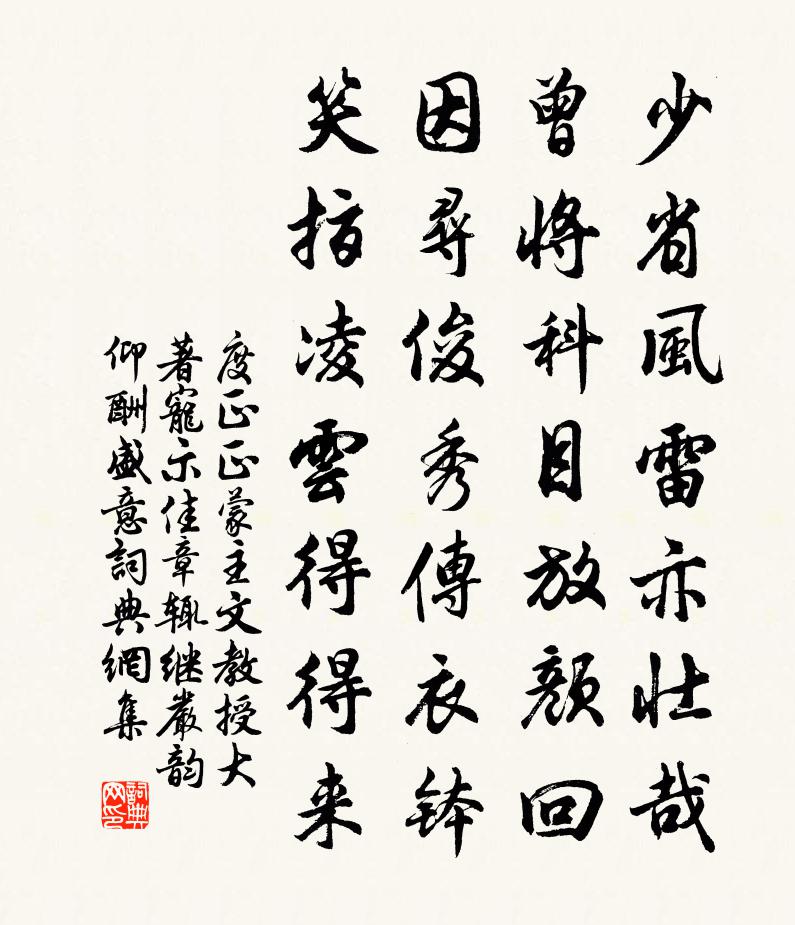 少省風雷亦壮哉
曾將科目放顔回
因尋俊秀傳衣鉢
笑指凌雲得得来
度正正蒙主文教授大
著寵示佳章辄继嚴韵
仰酬盛意詞典網集
詞典网印